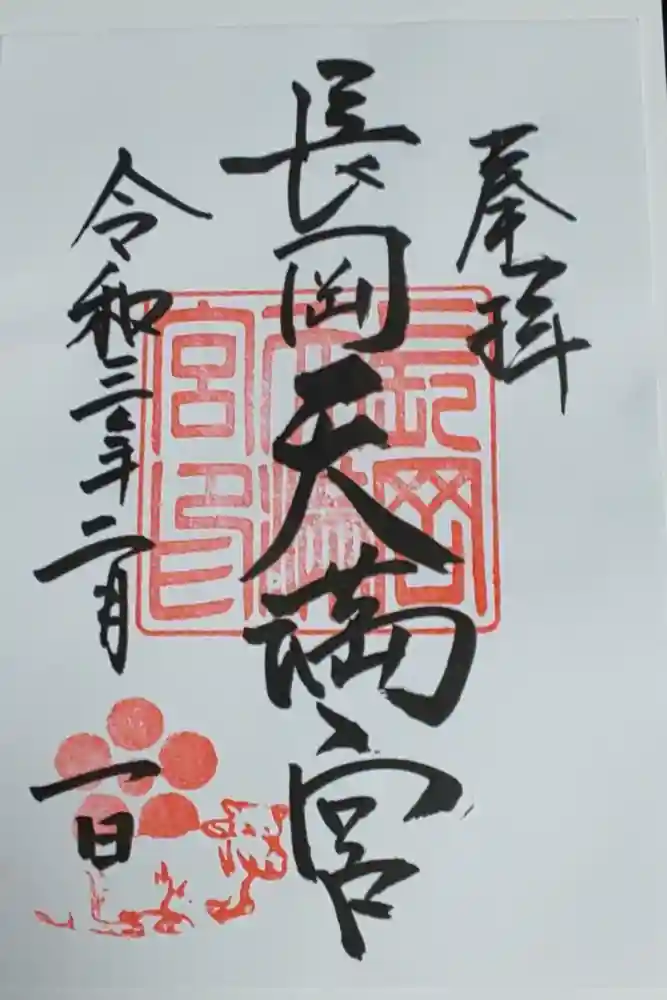 奉拝
長岡天満宮
長岡天満宮印
令和三年二月一日